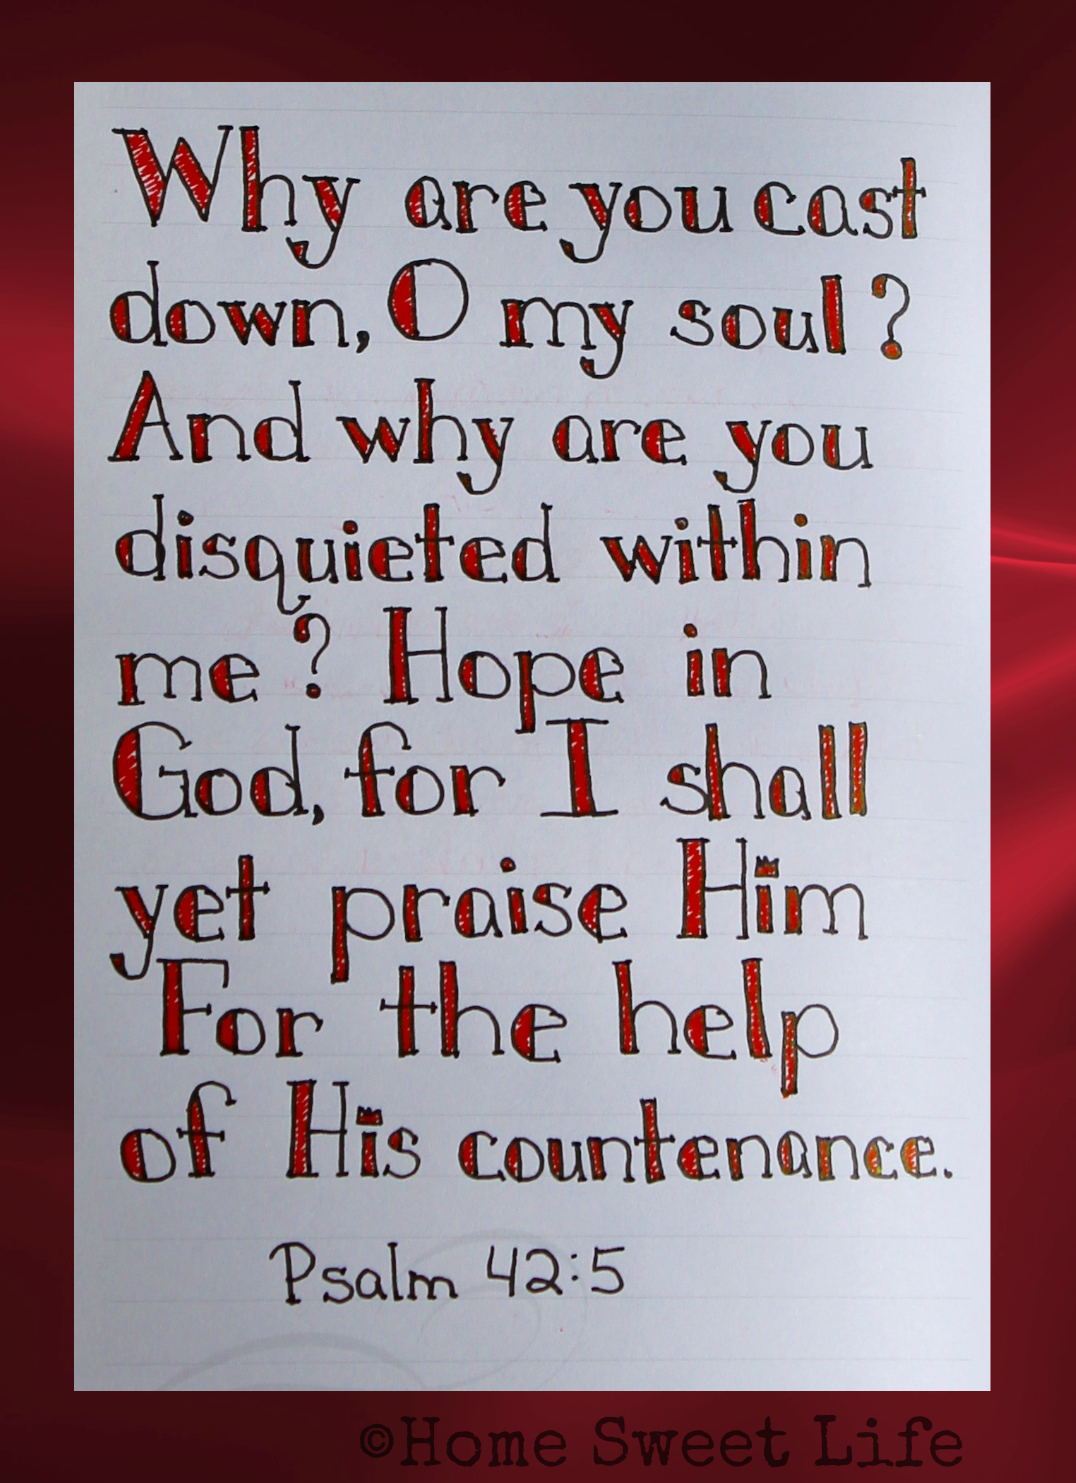 Why are you cast
down, O my soul?
And why are you
disquieted within
me? Hope in
God, for I shall
yet praise Him
For the help
of His countenance.
Psalm 42:5
©Home Sweet Life